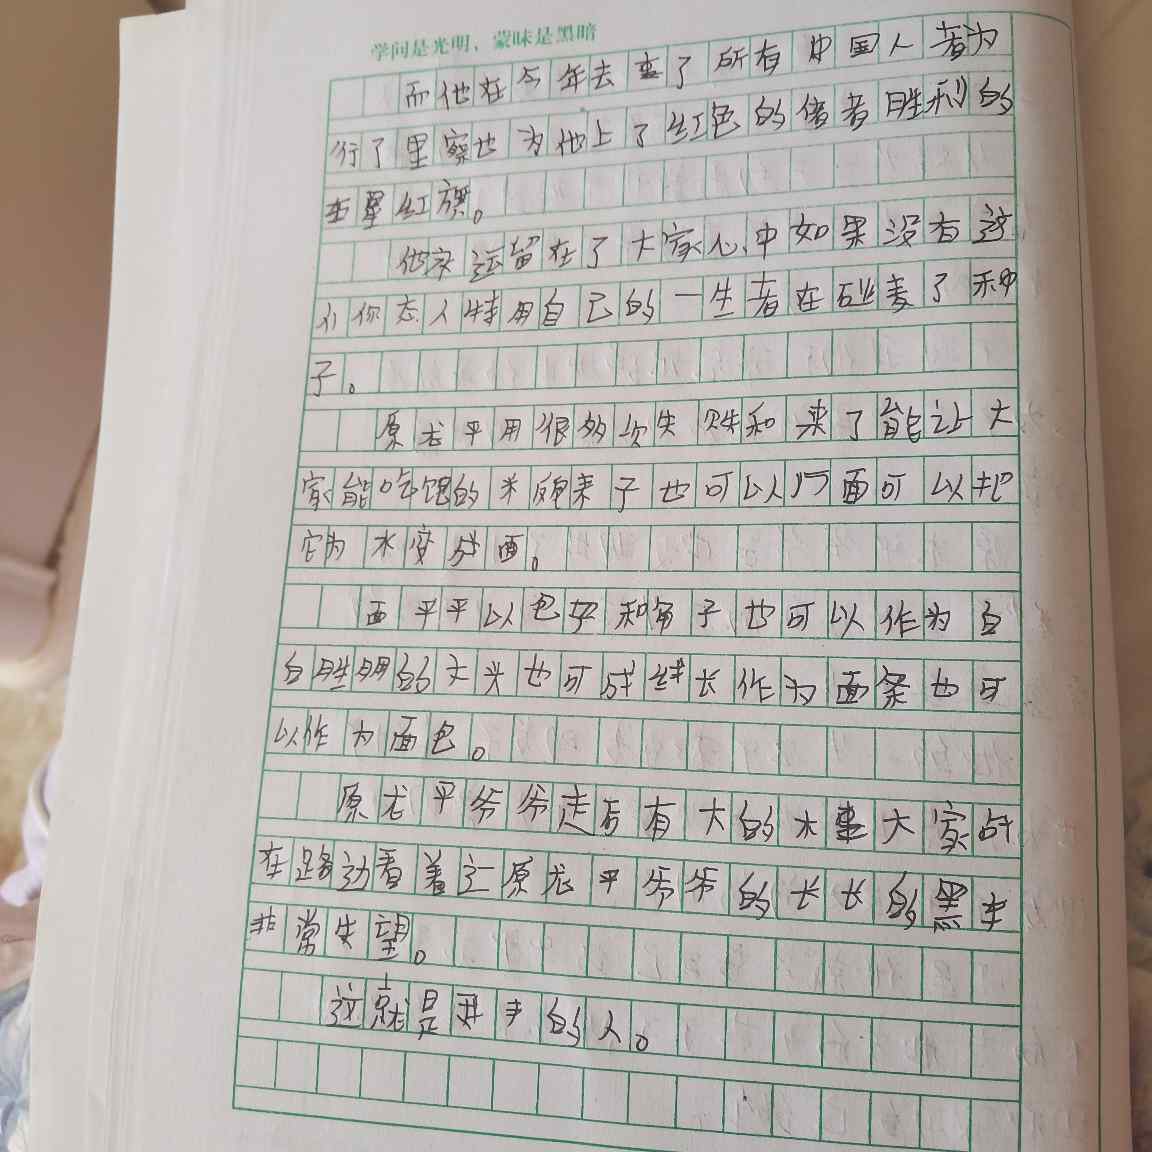 学问是光明，蒙昧是黑暗
而他在今年去世了所有中国人都为
行了里察也为他上了红色的着胜利的
五星红旗。
他永远留在了大家心中如果没有这
个你态人特用自己的一生者在碰麦了种
子。
原龙平用很多次失败和来了能让大
家能吃饱的米后来子也可以吃面可以把
它为水变成面。
面平平以包好和每子也可以作为白
白胖胖的大头也可成线长作为面条也可
以作为面包。
原龙平爷爷走后有大的木车大家站
在路边看着这原龙平爷爷的长长的黑车
非常失望。
这就是我丰的人。